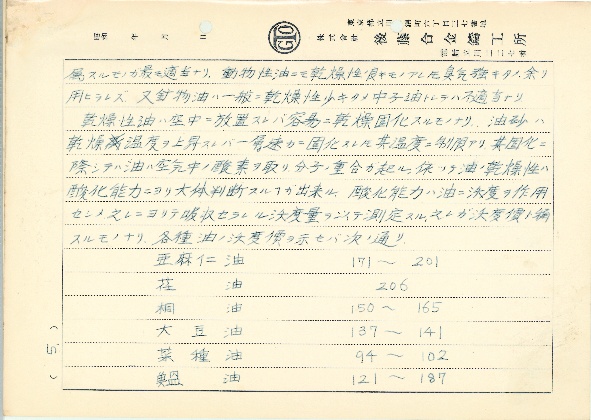 昭和 年 月 日
株式会社 後藤合金鋳工所
属スルモノガ最モ適当ナリ、動物性油ニモ乾燥性良キモノアレ共臭気強キタメ余リ
用ヒラレズ 又鉱物油ハ一般ニ乾燥性少キタメ中子油トシテハ不適当ナリ
乾燥性油ハ空中ニ放置スレバ容易ニ乾燥固化スルモノナリ、油砂ハ
乾燥温度ヲ上昇スレバ一層速カニ固化スルモ其温度ニ制限アリ 其固化ニ
際シテハ油ハ空気中ノ酸素ヲ取リ分子ノ重合ガ起ル、依ッテ油ノ乾燥性ハ
酸化能力ニヨリ大体判断スル事ガ出来ル、酸化能力ハ油ニ沃度ヲ作用
セシメ之レニヨリテ吸収セラレル沃度量ヲ以テ測定スル、之レガ沃度価ト称
スルモノナリ、各種油ノ沃度価ヲ示セバ次ノ通リ
亜麻仁油 171～201
荏油 206
桐油 150～165
大豆油 137～141
菜種油 94～102
油 121～187
(5)